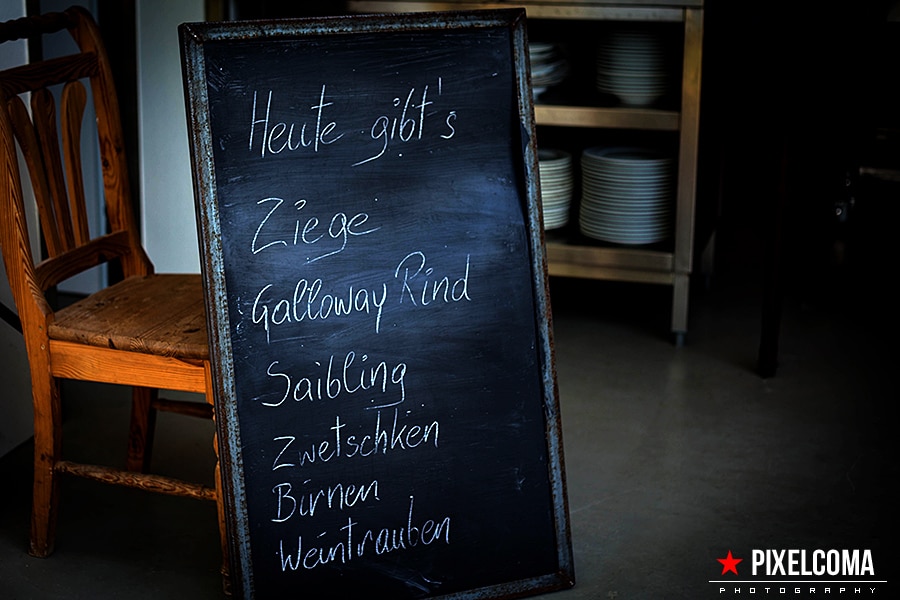 Heute gibt's
Ziege
Galloway Rind
Saibling
Zwetschken
Birnen
Weintrauben
PIXELCOMA
PHOTOGRAPHY